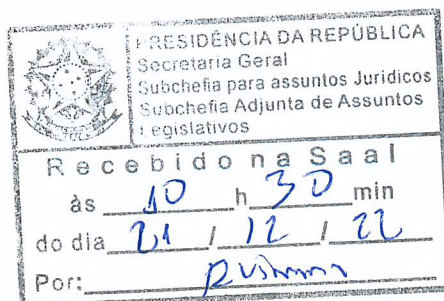 PRESIDÊNCIA DA REPÚBLICA
Secretaria Geral
Subchefia para assuntos Jurídicos
Subchefia Adjunta de Assuntos
Legislativos
Recebido na Saal
às 10 h 30 min
do dia 21 / 12 / 22
Por: